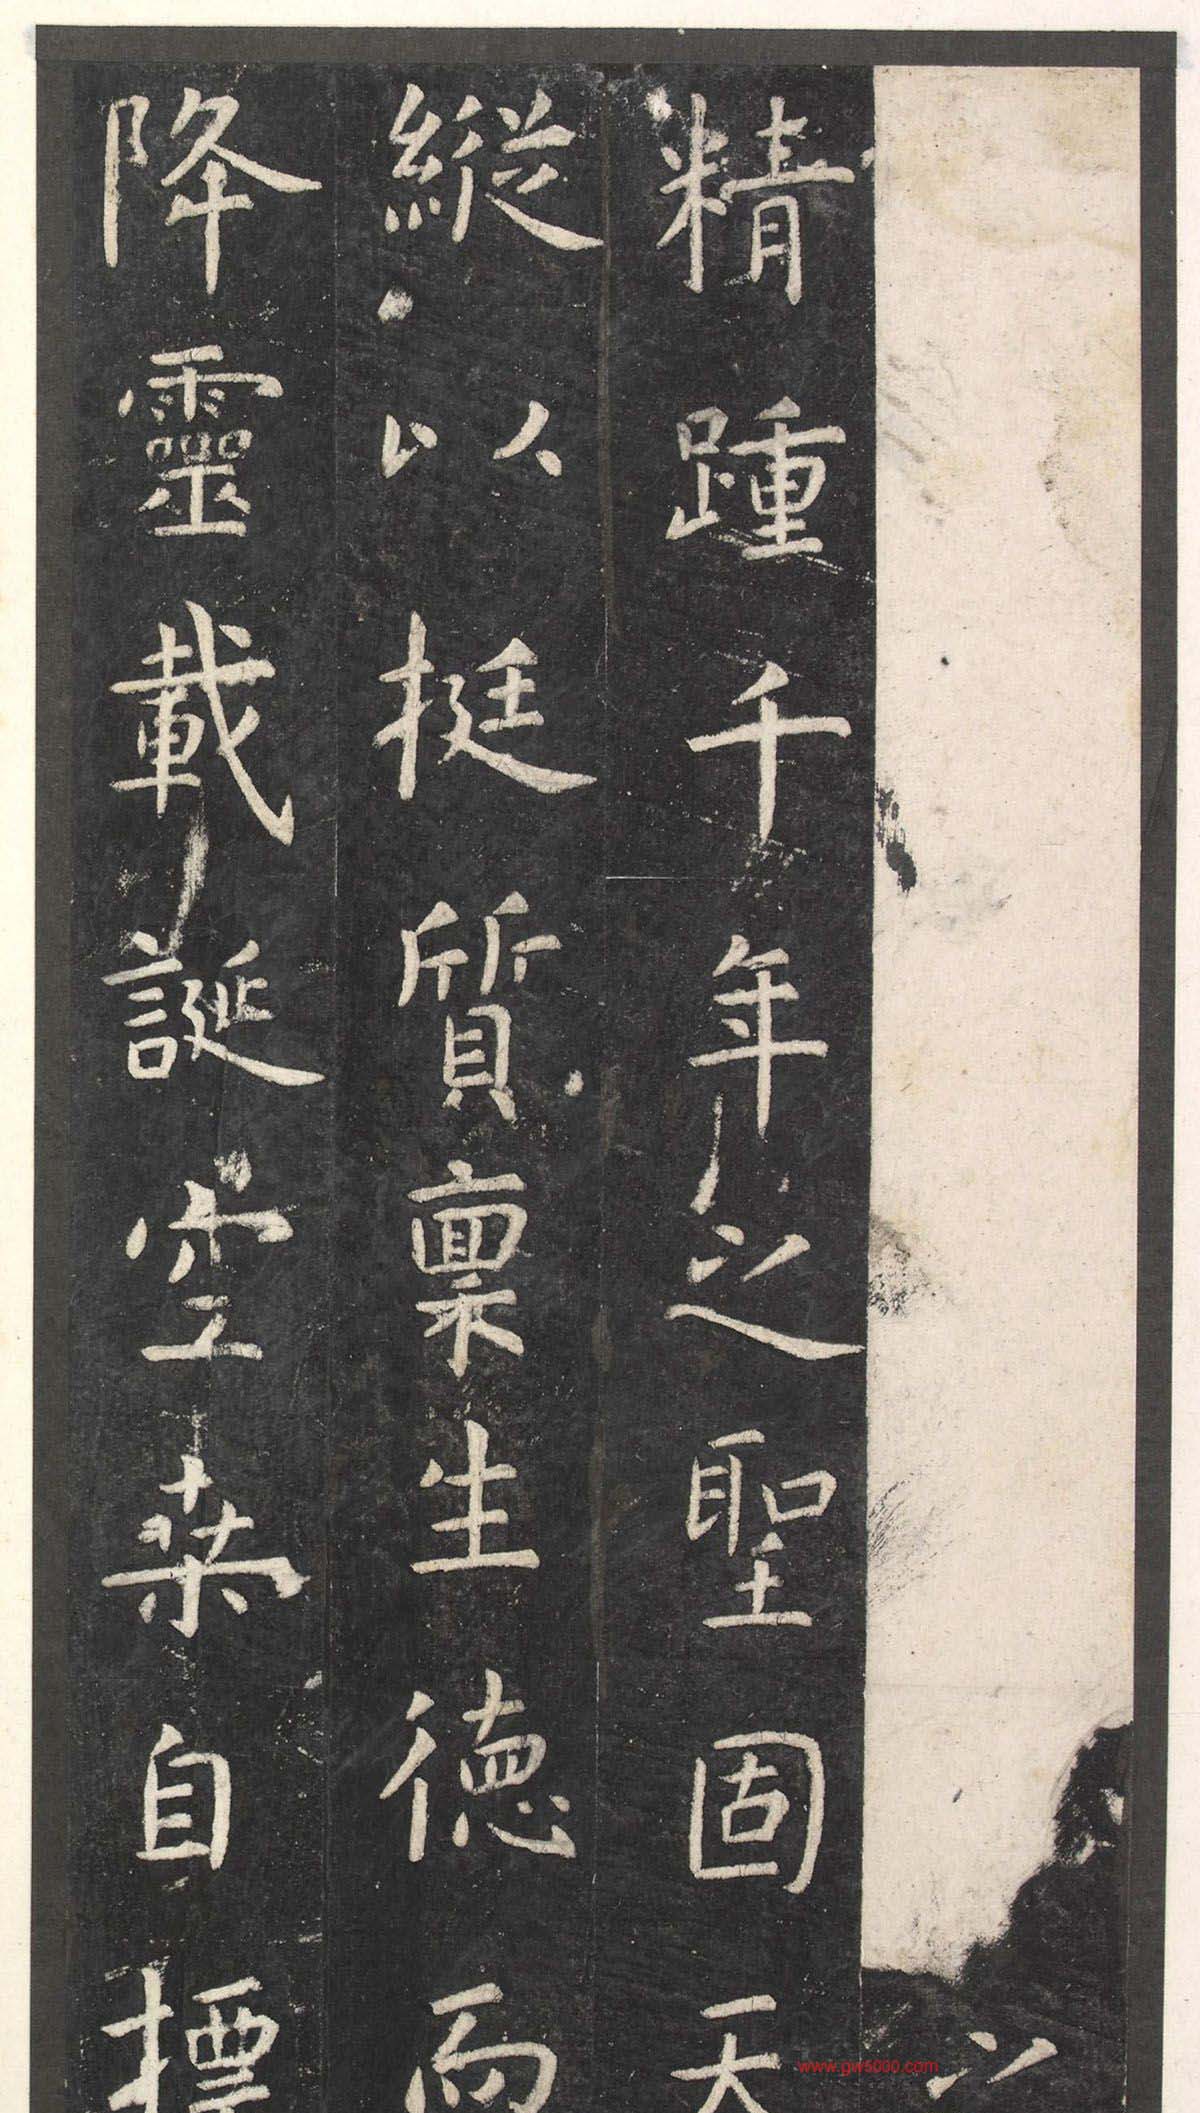 精踵千年之聖固天
縱以挺質禀生德而
降靈載誕空桒自標
www.gw5000.com